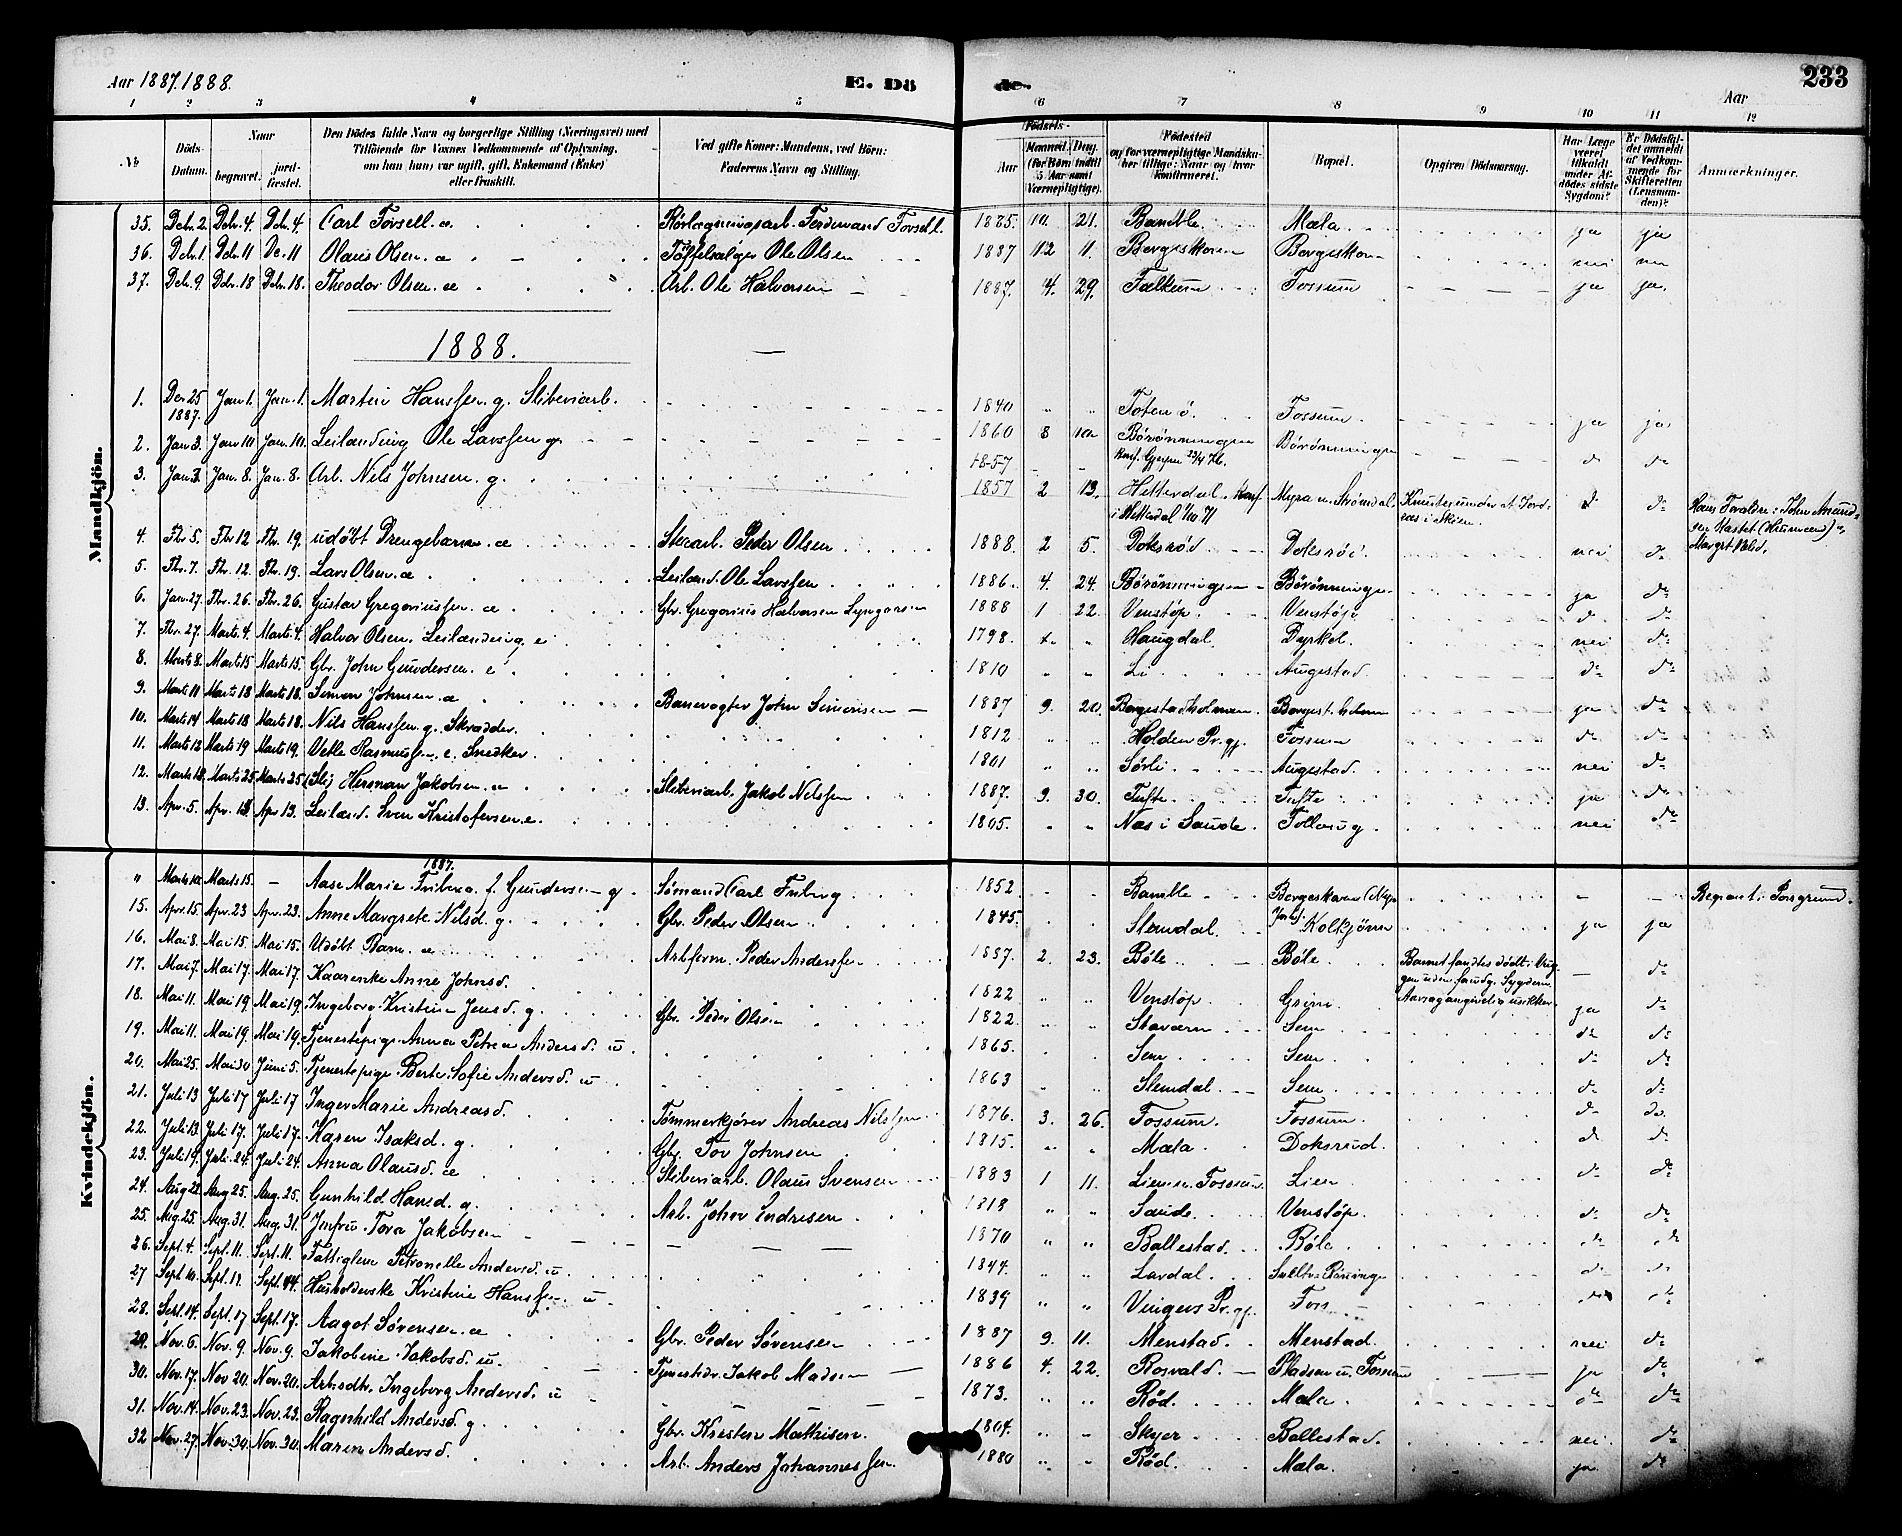 Aar 1887. 1888. E. Dö de. Aar 233
1 2 3 4 5 6 7 8 9 10 11 12
No Döds-Datum. Naar begravet. jord-fæstet. Den Dödes fulde Navn og borgerlige Stilling (Næringsvei) med Tilföiende for Voxnes Vedkommende af Oplysning, om han (hun) var ugift, gift, Enkemand (Enke) eller fraskilt. Ved gifte Koner: Mandens, ved Börn: Faderens Navn og Stilling. Födsels- Aar Maaned. Dag. (for Børn indtil 5 Aar samt Værnepligtige). Födested og for værnepligtige Mandskaber tillige: Naar og hvor konfirmeret. Bopæl. Opgiven Dödsaarsag. Har Læge været tilkaldt under Afdödes sidste Sygdom? Er Dödsfaldet anmeldt af Vedkommende for Skifteretten (Lensmanden)? Anmærkninger.
Mandkjön.
35. Dcbr. 2. Dcbr. 4. Dcbr. 4. Carl Forsell. æ Rörlægningsarb. Ferdinand Forsell. 1885. 10. 21. Bamble Mæla ja ja
36. Dcbr. 1. Dcbr. 11 De. 11 Olaus Olsen. æ Töffelsælger Ole Olsen 1887 12 1. Borgeskoven Borgeskoven nei nei
37. Dcbr. 9 Dcbr. 18 Dcbr. 18. Theodor Olsen. æ Arb. Ole Halvorsen 1887. 4. 29. Falkum Fossum ja ja.
1888.
1. Dec 25 1887. Jan. 1. Jan. 1. Martin Hanssen g. Sliberiarb. 1840 Toten ö. Fossum. ja ja
2. Jan. 3. Jan 10 Jan. 10. Leilænding Ole Larssen g. 1860 8 10 Börönningen Konf. Gjerpen 23/4 76. Börönningen d d
3. Jan. 3. Jan. 8. Jan. 8. Arb. Nils Johnsen. g. 1857 1857 2 13. Hitterdal. Konf. i Hitterdal 1/10 71 Myra u. Strömdal d d Hans Foraldre: John Amundsen
4. Fbr. 5. Fbr 12 Fbr. 19. udöbt Drengebarn. æ Stuearb. Peder Olsen 1888. 2 5. Doksröd Doksröd. nei d
5. Fbr. 7. Fbr. 12 Fbr. 19. Lars Olsen. æ Leilænd. Ole Larssen 1886. 4. 24. Börönningen Börönningen
6. Jan. 27. Fbr. 26. Fbr. 26. Gustav Gregoriussen. æ Gbr. Gregorius Halvorsen 1888 1 22. Venstöp. Venstöp ja d
7. Fbr. 27. Marts 4. Marts 4. Halvor Olsen. Leilænding, e 1798. Haugdal Dyrkol. nei d
8. Marts 8. Marts 15 Marts 15. Gbr. John Gundersen. e 1810 Li Augestad d d
9. Marts 11 Marts 18 Marts 18. Simon Johnsen. æ Banevogter John Simonsen 1887 9. 20. Borgestadholmen. Borgest.holmen ja d
10. Marts 14 Marts 18 Marts 18. Nils Hanssen g. Skrædder. 1812 Holden Pr.gj. Fossum d d
11. Marts 12 Marts 19 Marts 19. Vetle Rasmussen. e. Snedker 1801 Sörli Augestad. nei d
12. Marts 18. Marts 25 Marts 25 Herman Jakobsen. æ Sliberiarb. Jakob Nilssen 1887. 9. 30. Tufte Tufte ja d
13. Apr. 5. Apr. 13 Apr 13. Leilænd. Sven Kristofersen. e. 1805. Næs i Saude. Follaug. nei d
Kvindekjön.
" Marts 10. Marts 15. – 1887. Aase Marie Friberg. f. Gundersen g Sömand Carl Friberg 1852. Bamble Borgeskoven Begravet i Porsgrund.
15. Apr. 15. Apr. 23 Apr. 23. Anne Margrete Nilsd. g. Gbr. Peder Olsen 1845. Slemdal Kolkjönn ja ja
16. Mai 8. Mai 15. Mai 15. Udöbt Barn. æ Arbform. Peder Anderssen 1887 2. 23. Böle Böle. – d
17. Mai 7. Mai 17. Mai 17. Kaarenke Anne Johnsd. 1822 Venstöp Grini ja d
18. Mai 11. Mai 19 Mai 19. Ingeborg Kristine Jensd. g. Gbr. Peder Olsen 1822. Stavern Sem d d
19. Mai 11. Mai 19. Mai 19. Tjenestepige Anna Petrea Andersd. u 1865. Sem Sem d d
20. Mai 25. Mai 30 Juni 5. Tjenestepige Berte Sofie Andersd. u 1863 Slemdal Sem. d d
21. Juli 13 Juli 17 Juli 17 Inger Marie Andreasd. Tömmerkjörer Andreas Nilssen 1876. 3. 26. Fossum. Fossum. d do.
22. Juli 13. Juli 17. Juli 17. Karen Isaksd. g. Gbr. Tov Johnsen 1815. Mæla Doksrud. d d
23. Juli 19. Juli 24. Juli 24. Anna Olausd. æ Sliberiarb. Olaus Svensen 1883 1 11. Lien u. Fossum Lien d d
24. Aug 22. Aug 25. Aug. 25. Gunhild Hansd. g. Arb. John Endresen 1818 Saude. Venstöp. d d
25. Aug. 25. Aug. 31. Aug. 31. Jmfru Tora Jakobsen 1870 Ballestad. Böle d d
26. Sept. 4. Sept. 11. Sept. 11. Fattiglem Petronelle Andersd. u. 1844. Lardal d d
27 Sept 10. Sept. 17. Sept. Husholderske Kristine Hanssen u. 1839 Vingers Pr.gj. Foss
28. Sept. 14. Sept. 17 Sept. 17. Aagot Sörensen. æ Gbr. Peder Sörensen 1887 9. 11. Menstad. Menstad. nei d
29. Nov. 6. Nov. 9. Nov. 9. Jakobine Jakobsd. u. Tjenestkr. Jakob Madsen 1886 4. 22. Rosvald. Pladsen u. Fossum ja d
30. Nov. 17. Nov 20. Nov. 20. Arbsdtr. Ingeborg Andersd. u 1873. Röd. Mæla. d d
31. Nov. 14. Nov. 23. Nov. 23. Ragnhild Andersd. g Gbr. Kristen Mathisen. 1804. Skyer Ballestad. nei d
32 Nov. 27. Nov. 30. Nov. 30. Maren Andersd. Arb. Anders Johannessen. 1880 Röd. Mæla ja. d